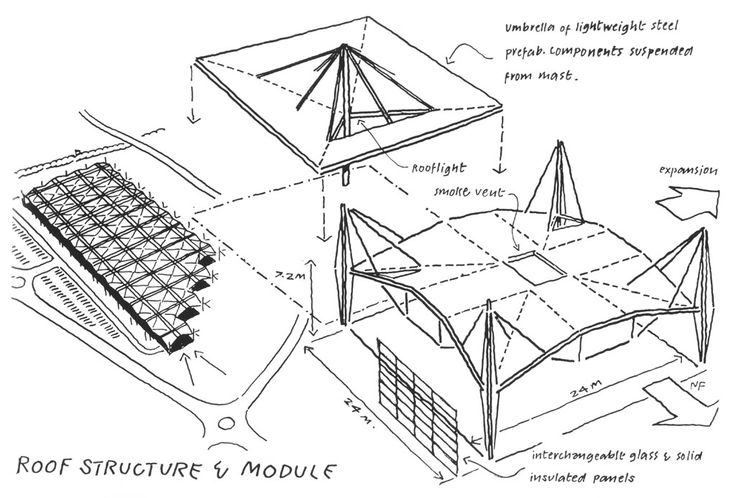 umbrella of lightweight steel
prefab. components suspended
from mast.
Rooflight
smoke vent
expansion
7.2M
24M
24M.
NF
interchangeable glass & solid
insulated panels
ROOF STRUCTURE & MODULE